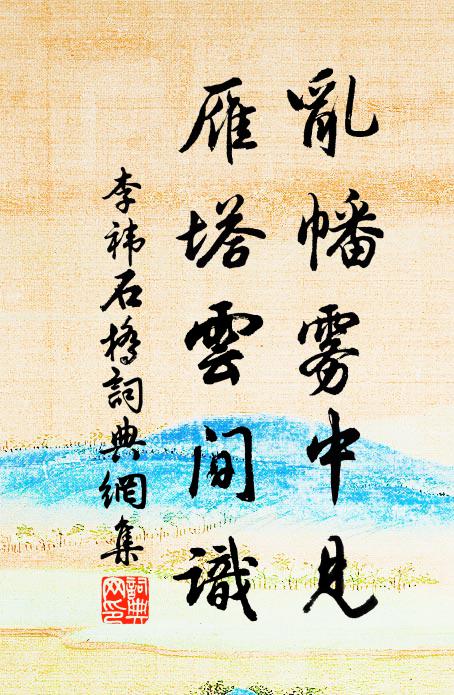 亂幡雾中見
雁塔雲間識
李祎石橋詞典網集
詞典